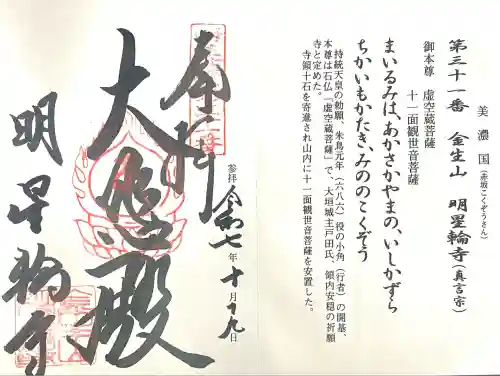 美濃国（赤坂こくぞうさん）
第三十一番　金生山　明星輪寺（真言宗）
御本尊　虚空蔵菩薩
十一面観世音菩薩
まいるみは、あかさかやまの、いしかずら
ちかいもかたき、みののこくぞう
持統天皇の勅願、朱鳥元年（六八六）役の小角（行者）の開基、
本尊は石仏「虚空蔵菩薩」で、大垣城主戸田氏、領内安穏の祈願
寺と定めた。
寺領十石を寄進され山内に十一面観世音菩薩を安置した。
奉拝
参拝 令和七年十月十九日
大悲殿
明星輪寺